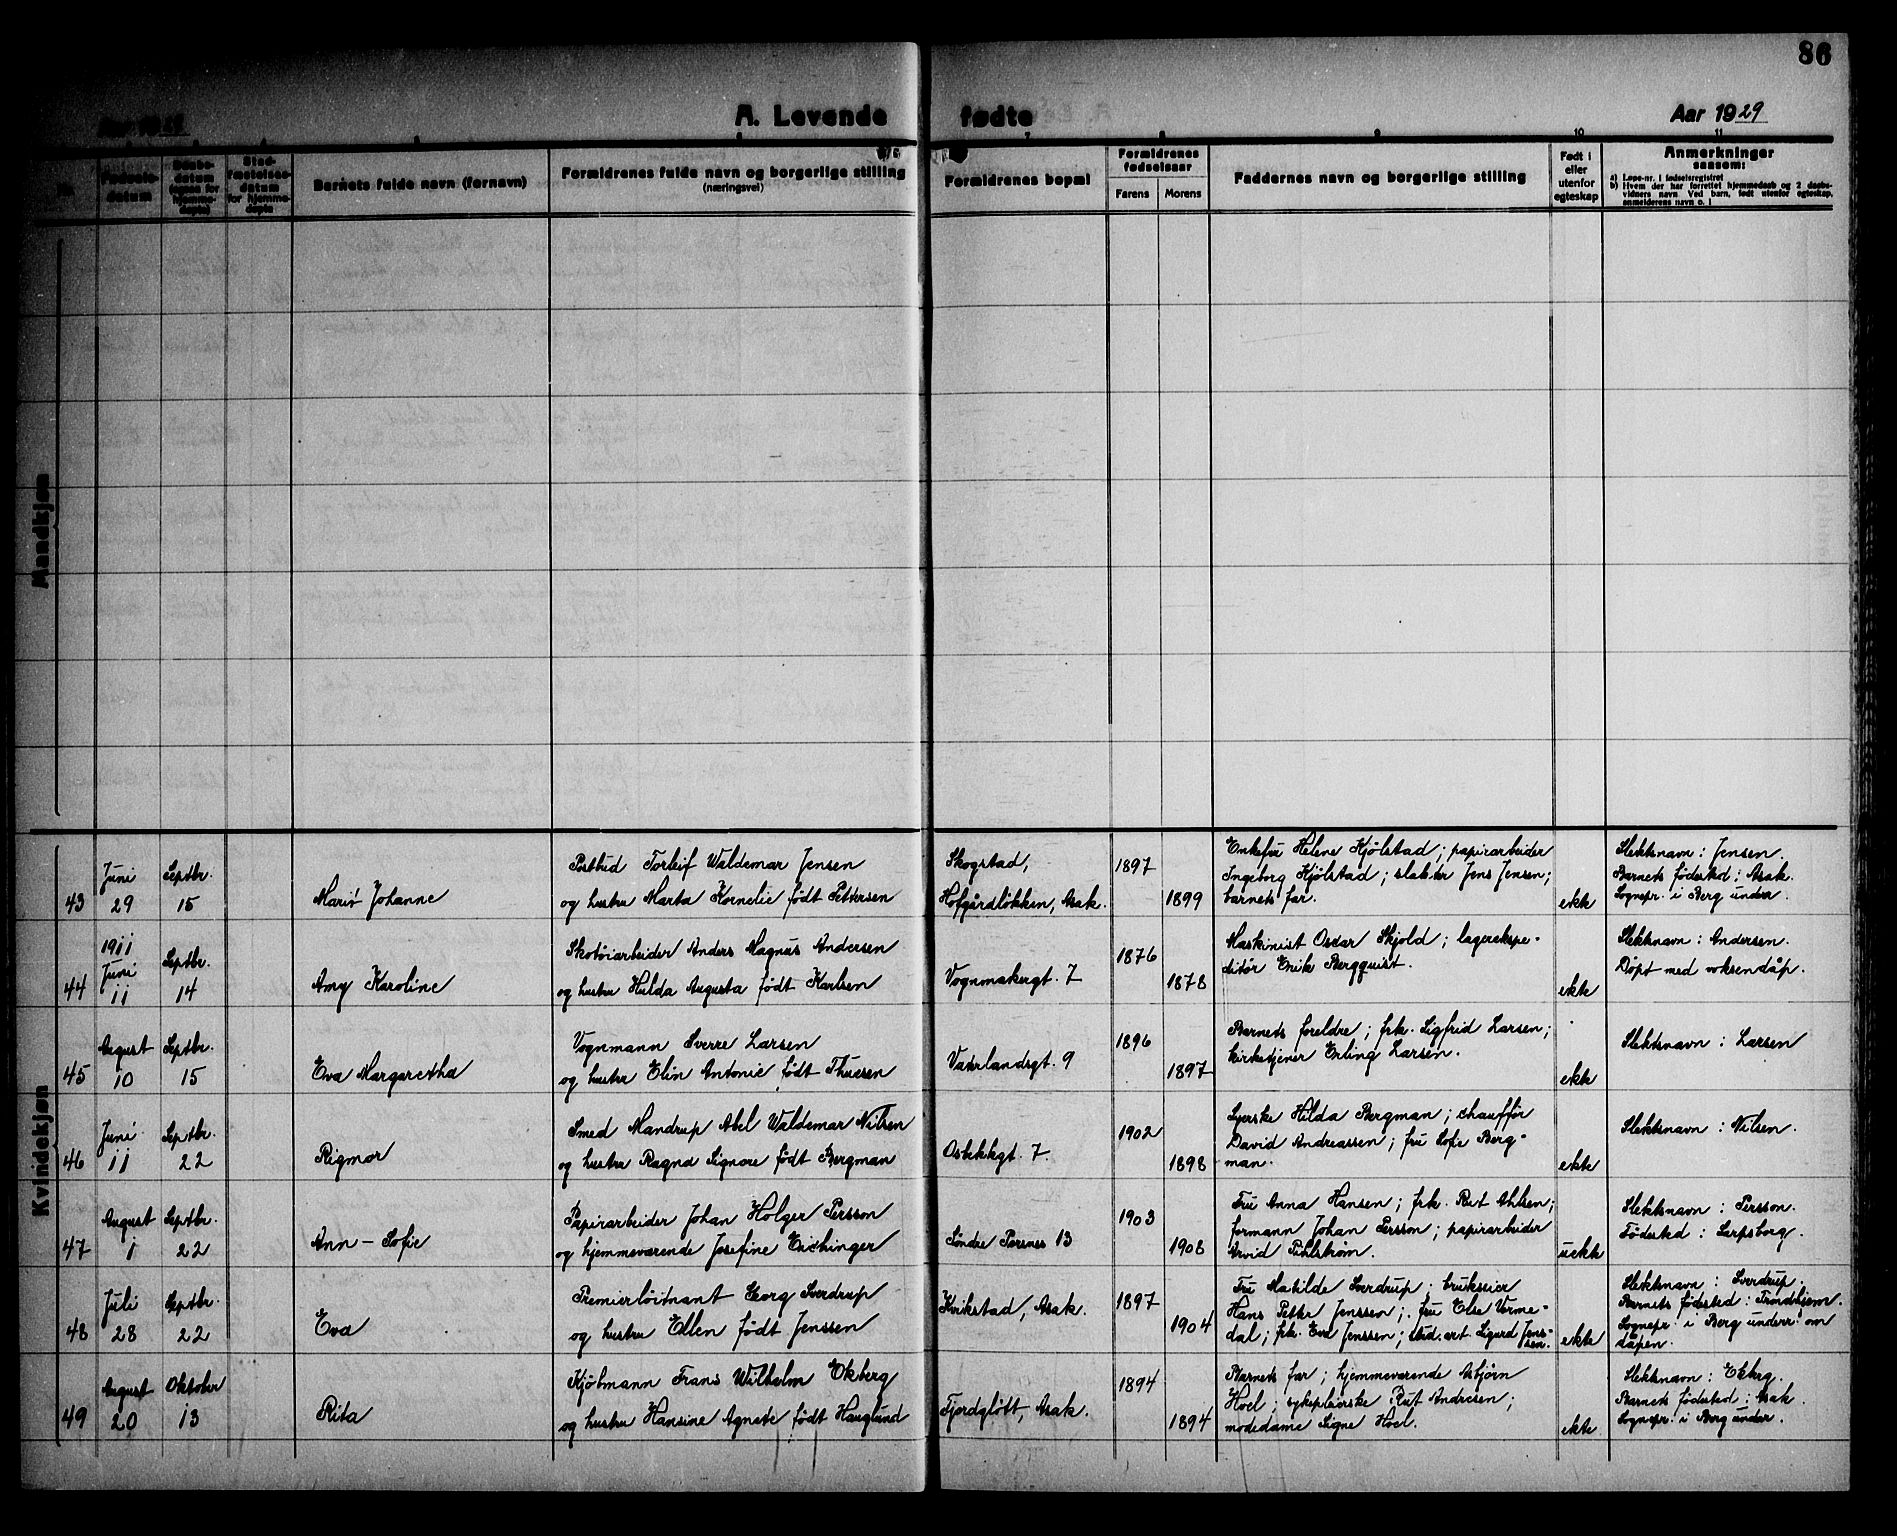 86
Aar 1929
A. Levende fødte
Aar 1929
Fødsels-
datum
Daabs-
datum
Stad-
fæstelses-
datum
for hjemme-
døpte
Barnets fulde navn (fornavn)
Forældrenes fulde navn og borgerlige stilling
(næringsvei)
7
8
9
10
11
Forældrenes bopæl
Forældrenes
fødselsaar
Farens
Morens
Faddernes navn og borgerlige stilling
Født i
eller
utenfor
egteskap
Anmerkninger
saasom:
a) Løpe-nr. i fødselsregistret
b) Hvem der har forrettet hjemmedaab og 2 daabs-
vidners navn. Ved barn, født utenfor egteskap,
anmelderens navn o. l
Mandkjøn
Kvindekjøn
43
Juni
29
Septbr.
15
Marit Johanne
Postbud Torleif Waldemar Jensen
og hustru Marta Kornelie født Pettersen
Skogstad,
Hofgårdløkken, Asak.
1897
1899
Enkefru Helene Kjølstad; papirarbeider
Ingeborg Kjølstad; slakter Jens Jensen;
barnets far.
ekte
Slektsnavn: Jensen.
Barnets fødested: Asak.
Sognepr. i Berg underr.
44
1911
Juni
11
Septbr.
14
Amy Karoline
Skotøiarbeider Anders Magnus Andersen
og hustru Hulda Augusta født Karlsen
Vognmakergt. 7
1876
1878
Maskinist Oscar Skjold; lagerekspe-
ditør Erik Bergquist.
ekte
Slektsnavn: Andersen.
Døpt med voksendåp.
45
August
10
Septbr.
15
Eva Margaretha
Vognmann Sverre Larsen
og hustru Elin Antonie født Thuesen
Vaterlandsgt. 9
1896
1897
Barnets foreldre; frk. Sigfrid Larsen;
kirketjener Erling Larsen.
ekte
Slektsnavn: Larsen
46
Juni
11
Septbr.
22
Rigmor
Smed Mandrup Abel Waldemar Nilsen
og hustru Ragna Signore født Bergman
Osbekkgt. 7.
1902
1898
Syerske Hilda Bergman; chauffør
David Andreassen; fru Sofie Berg-
man.
ekte
Slektsnavn: Nilsen.
47
August
1
Septbr.
22
Ann-Sofie
Papirarbeider Johan Holger Persson
og hjemmeværende Josefine Eichinger
Søndre Porsnes 13
1903
1908
Fru Anna Hansen; frk. Rut Ahlsen;
formann Johan Persson; papirarbeider
Arvid Pihlstrøm.
uekte
Slektsnavn: Persson.
Fødested: Sarpsborg.
48
Juli
28
Septbr.
22
Eva
Premierløitnant Georg Sverdrup
og hustru Ellen født Jenssen
Kvikstad, Asak.
1897
1904
Fru Matilde Sverdrup; brukseier
Hans Peter Jenssen; fru Else Vorme-
dal; frk. Eva Jenssen; stud. art. Sigurd Jens-
sen.
ekte
Slektsnavn: Sverdrup.
Barnets fødested: Trondhjem.
Sognepr. i Berg underr. om
dåpen.
49
August
20
Oktober
13
Rita
Kjøbmann Frans Wilhelm Ekberg
og hustru Hansine Agnete født Hauglund
Fjordgløtt, Asak.
1894
1894
Barnets far; hjemmeværende Asbjørn
Hoel; sykepleierske Rut Andresen;
modedame Signe Hoel.
ekte
Slektsnavn: Ekberg.
Barnets fødested: Asak.
Sognepr. i Berg underr.